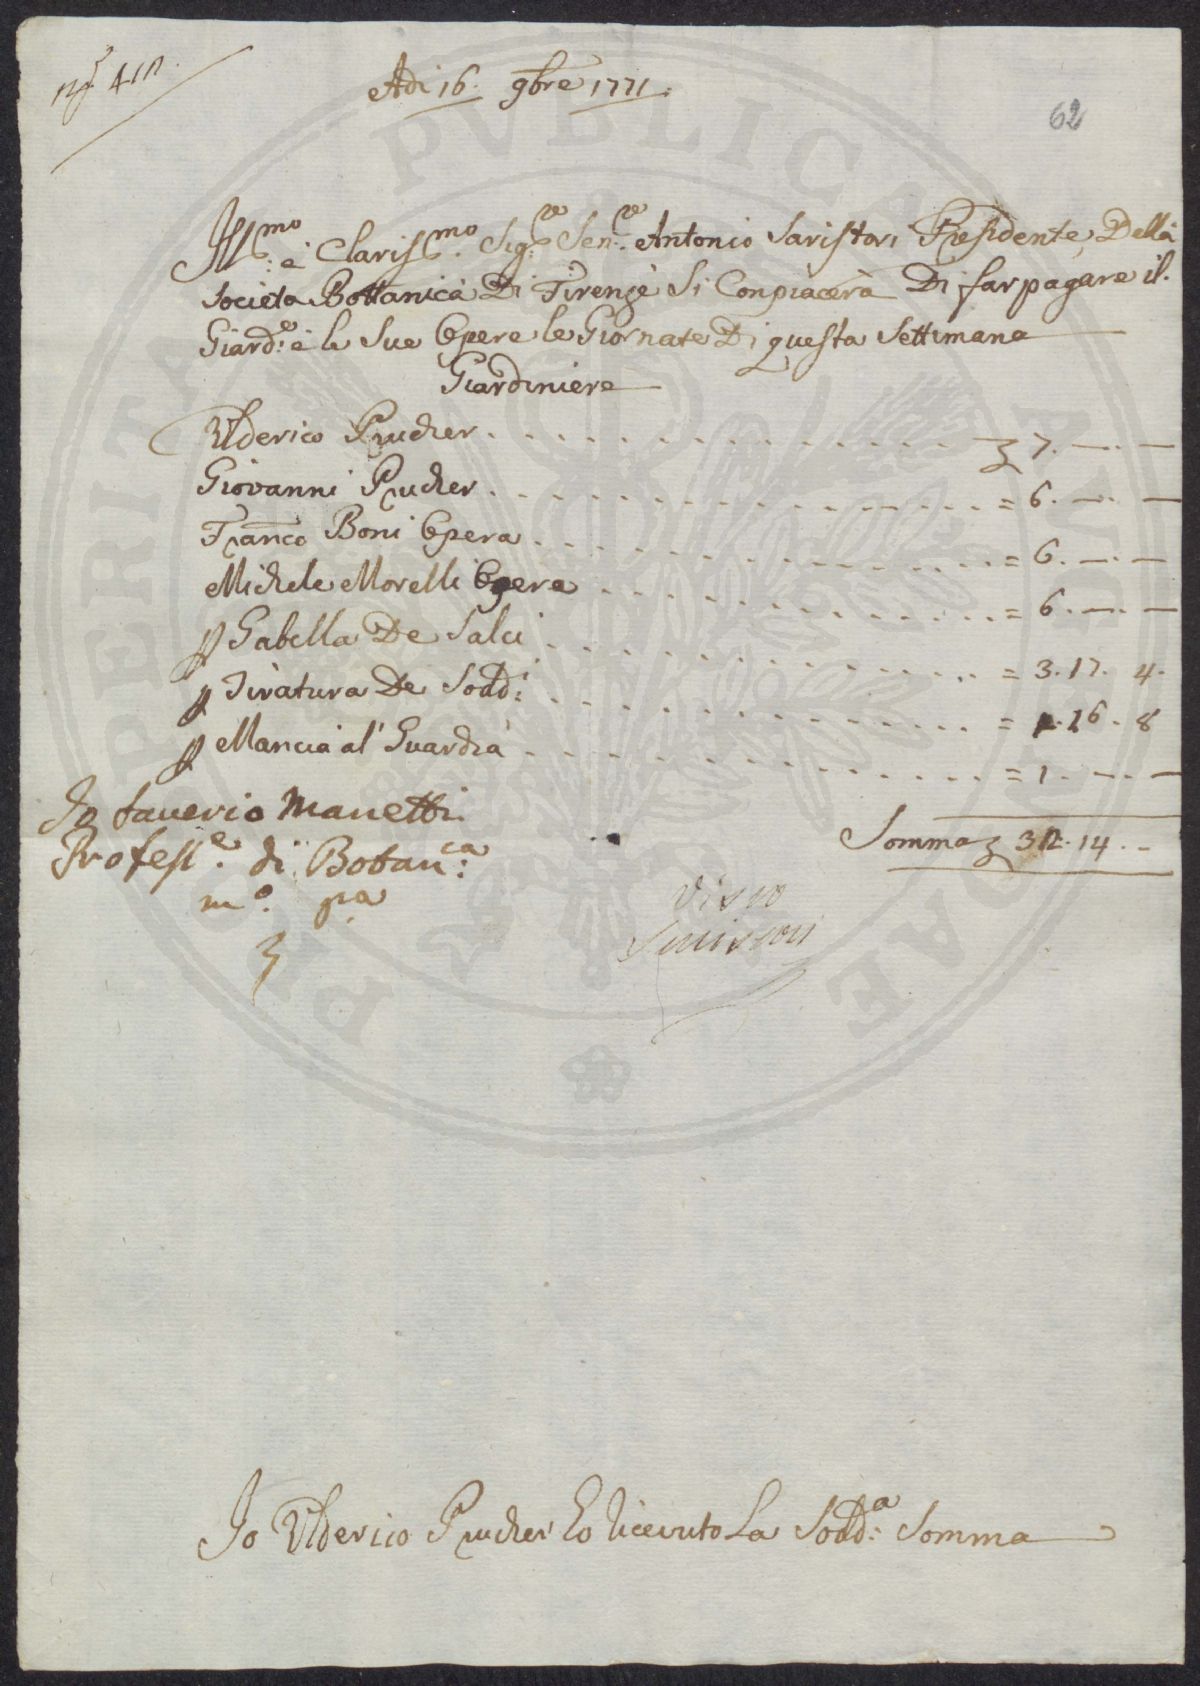 Adi 16. 9bre 1771.
62
Ill.mo e Clariss.mo Sig.re Sen.re Antonio Saristori Presidente Della
Societa Bottanica Di Firenze Si Conpiacerà Di far pagare il
Giard.e e le Sue Opere le Giornate Di questa Settimana
Giardiniere
Ulderico Prucher . . . . . . . . . . 7. — . —
Giovanni Prucher . . . . . . . . . . = 6. — . —
Franco Boni Opera . . . . . . . . . . = 6. — . —
Michele Morelli Opera . . . . . . . . . . = 6. — . —
p Gabella De Salci . . . . . . . . . . = 3. 17. 4.
p Tiratura De Sodd.i . . . . . . . . . . = 1. 16. 8
p Mancia al' Guardia . . . . . . . . . . = 1. — . —
Somma 32. 14. -
Io Saverio Manetti
Profess.e di Botan.ca
m.o pa
Visto
Io Ulderico Prucher ho ricevuto La Sodd.a Somma
PERITA PVBLICAE